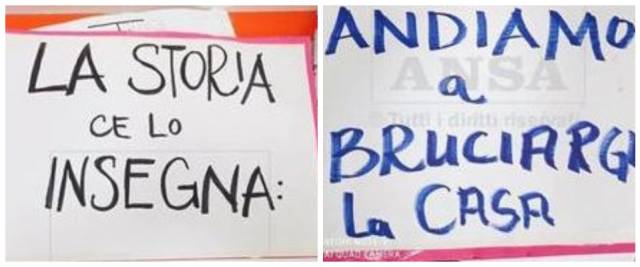 LA STORIA
CE LO
INSEGNA:
ANDIAMO
a
ANSA
© Tutti i diritti riservati
BRUCIARG
La CASA
QUAD CAMERA